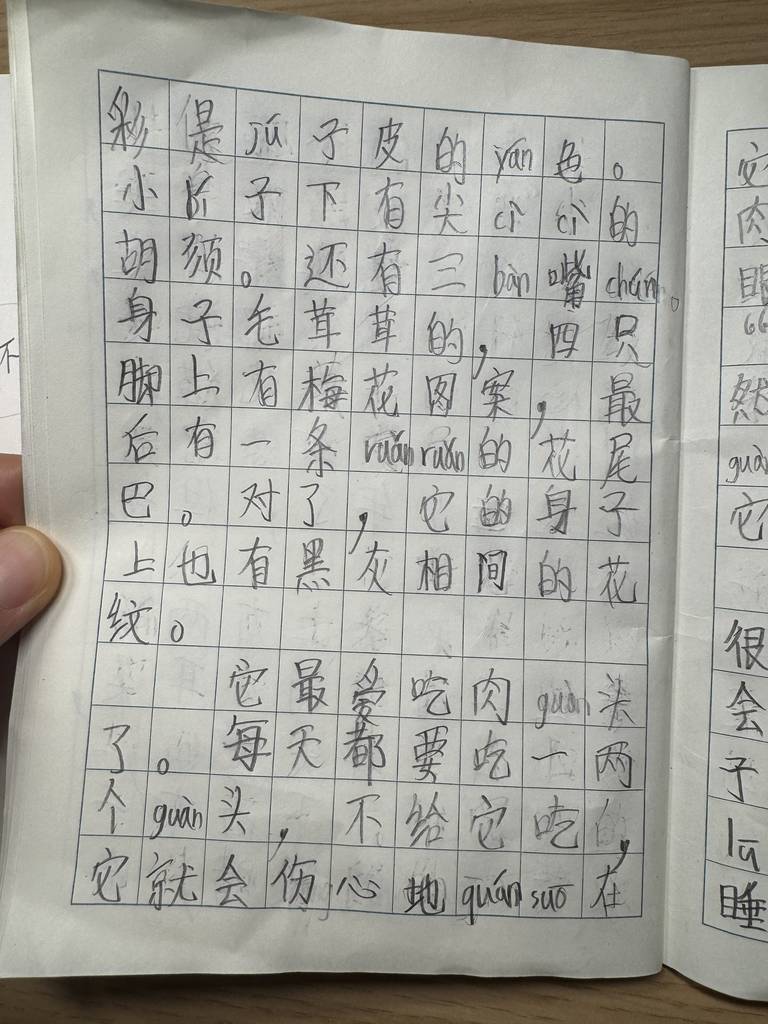 彩但是jú子皮的yán色。
小子下有尖cì cì的
胡须。还有三bàn嘴chún。
身子毛茸茸的，四只
脚上有梅花图案，最
后有一条ruǎn ruǎn的花尾
巴。对了，它的身子
上也有黑灰相间的花
纹。
它最爱吃肉guàn头
了。每天都要吃一两
个guàn头，不给它吃，
它就会伤心地quán suō在
它
肉
眼
66
然
guàn
它
很
会
子
lū
睡